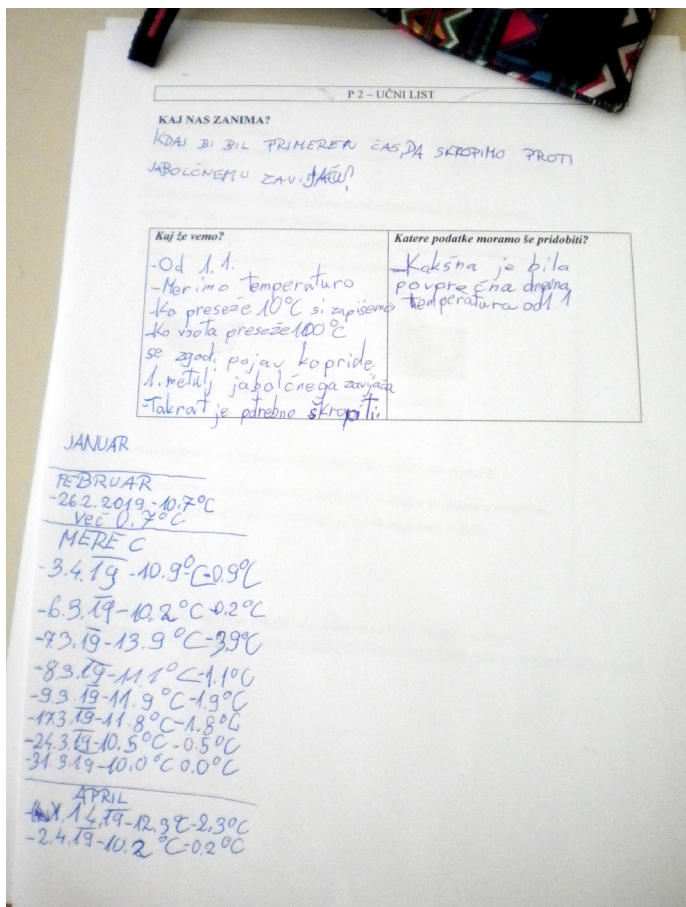 P 2 – UČNI LIST
KAJ NAS ZANIMA?
KDAJ BI BIL PRIMEREN ČAS, DA ŠKROPIMO PROTI
JABOLČNEMU ZAVIJAČU?
Kaj že vemo?
-Od 1.1.
-Merimo temperaturo
-Ko preseže 10°C si zapišemo
-Ko vsota preseže 100°C
se zgodi pojav ko pride
1. metulj jabolčnega zavijača
-Takrat je potrebno škropiti.
Katere podatke moramo še pridobiti?
-Kakšna je bila
povprečna dnevna
temperatura od 1.1
JANUAR
FEBRUAR
-26.2.2019-10.7°C
več 0.7°C
MEREC
-3.4.19-10.9°C-0.9°C
-6.3.19-10.2°C-0.2°C
-7.3.19-13.9°C-3.9°C
-8.3.19-11.1°C-1.1°C
-9.3.19-11.9°C-1.9°C
-17.3.19-11.8°C-1.8°C
-24.3.19-10.5°C-0.5°C
-31.3.19-10.0°C 0.0°C
APRIL
1.4.19-12.3°C-2.3°C
-2.4.19-10.2°C-0.2°C